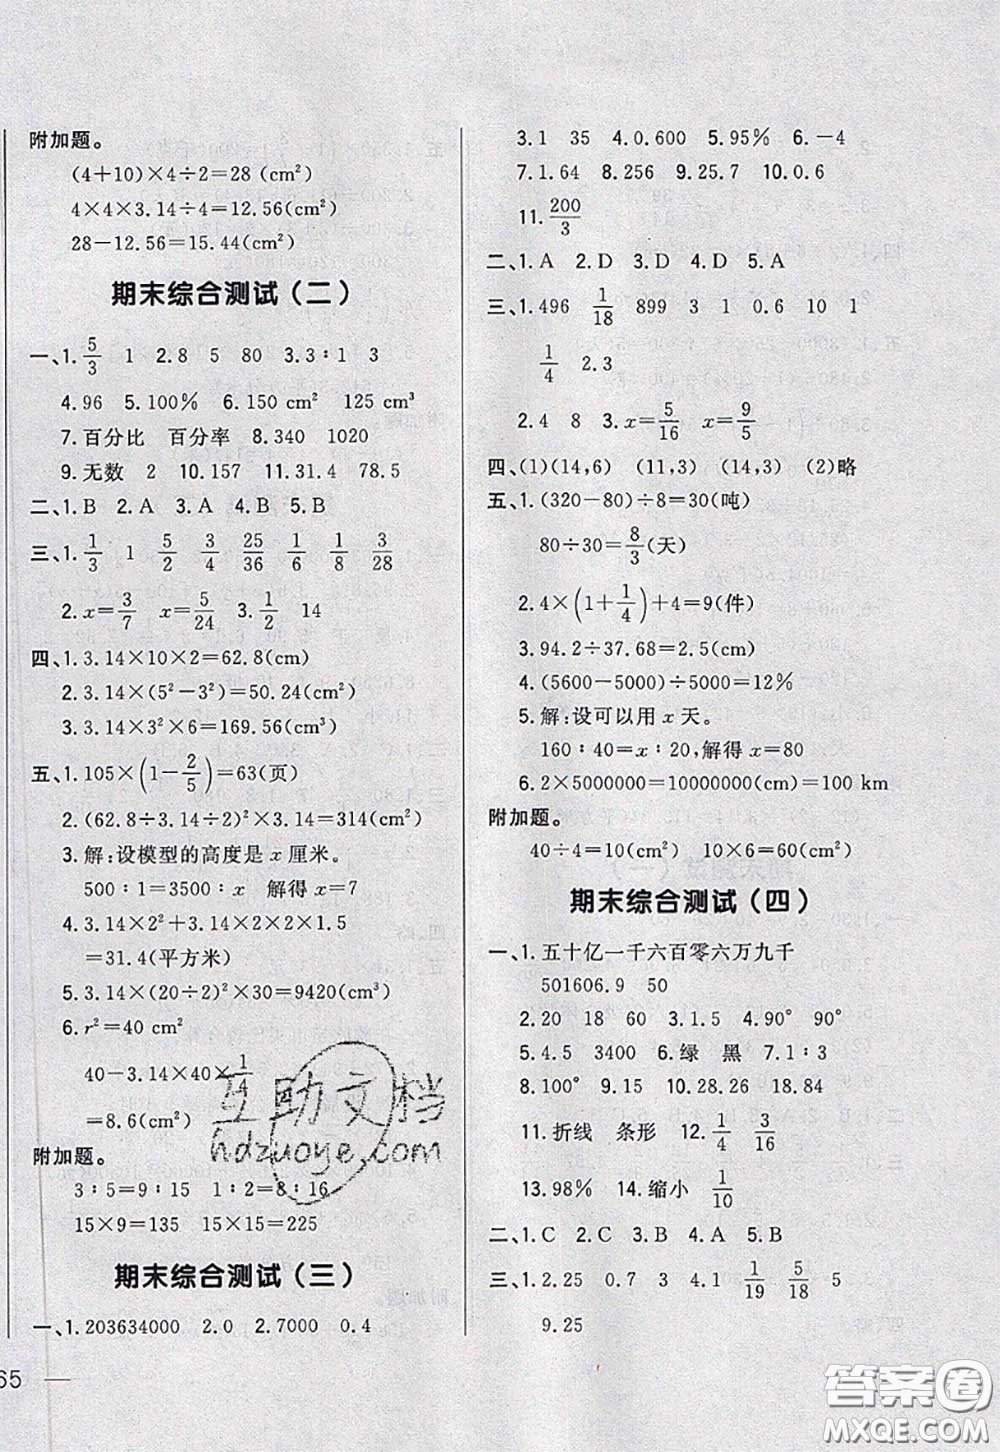 附加题。
(4+10)×4÷2=28(cm²)
4×4×3.14÷4=12.56(cm²)
28-12.56=15.44(cm²)
期末综合测试(二)
一、1.5/3 1 2.8 5 80 3.3∶1 3
4.96 5.100% 6.150 cm² 125 cm³
7.百分比 百分率 8.340 1020
9.无数 2 10.157 11.31.4 78.5
二、1.B 2.A 3.A 4.B 5.B
三、1.1/3 1 5/2 3/4 25/36 1/6 1/8 3/28
2.x=3/7 x=5/24 3.1/2 14
四、1.3.14×10×2=62.8(cm)
2.3.14×(5²-3²)=50.24(cm)
3.3.14×3²×6=169.56(cm³)
五、1.105×(1-2/5)=63(页)
2.(62.8÷3.14÷2)²×3.14=314(cm²)
3.解:设模型的高度是 x 厘米。
500∶1=3500∶x 解得 x=7
4.3.14×2²+3.14×2×2×1.5
=31.4(平方米)
5.3.14×(20÷2)²×30=9420(cm³)
6.r²=40 cm²
40-3.14×40×1/4
=8.6(cm²)
附加题。
3∶5=9∶15 1∶2=8∶16
15×9=135 15×15=225
期末综合测试(三)
一、1.203634000 2.0 2.7000 0.4
65
3.1 35 4.0.600 5.95% 6.-4
7.1.64 8.256 9.25.7 10.0.6
11.200/3
二、1.A 2.D 3.D 4.D 5.A
三、1.496 1/18 899 3 1 0.6 10 1
1/4 2.3
2.4 8 3.x=5/16 x=9/5
四、(1)(14,6) (11,3) (14,3) (2)略
五、1.(320-80)÷8=30(吨)
80÷30=8/3(天)
2.4×(1+1/4)+4=9(件)
3.94.2÷37.68=2.5(cm)
4.(5600-5000)÷5000=12%
5.解:设可以用 x 天。
160∶40=x∶20,解得 x=80
6.2×5000000=10000000(cm)=100 km
附加题。
40÷4=10(cm²) 10×6=60(cm²)
期末综合测试(四)
一、1.五十亿一千六百零六万九千
501606.9 50
2.20 18 60 3.1.5 4.90° 90°
5.4.5 3400 6.绿 黑 7.1∶3
8.100° 9.15 10.28.26 18.84
11.折线 条形 12.1/4 3/16
13.98% 14.缩小 1/10
二、1.C 2.C 3.B 4.A 5.B
三、1.2.25 0.7 3 4.1 1/19 5/18 5
9.25
互助文档
hdzuoye.com
答案圈
MXQE.COM